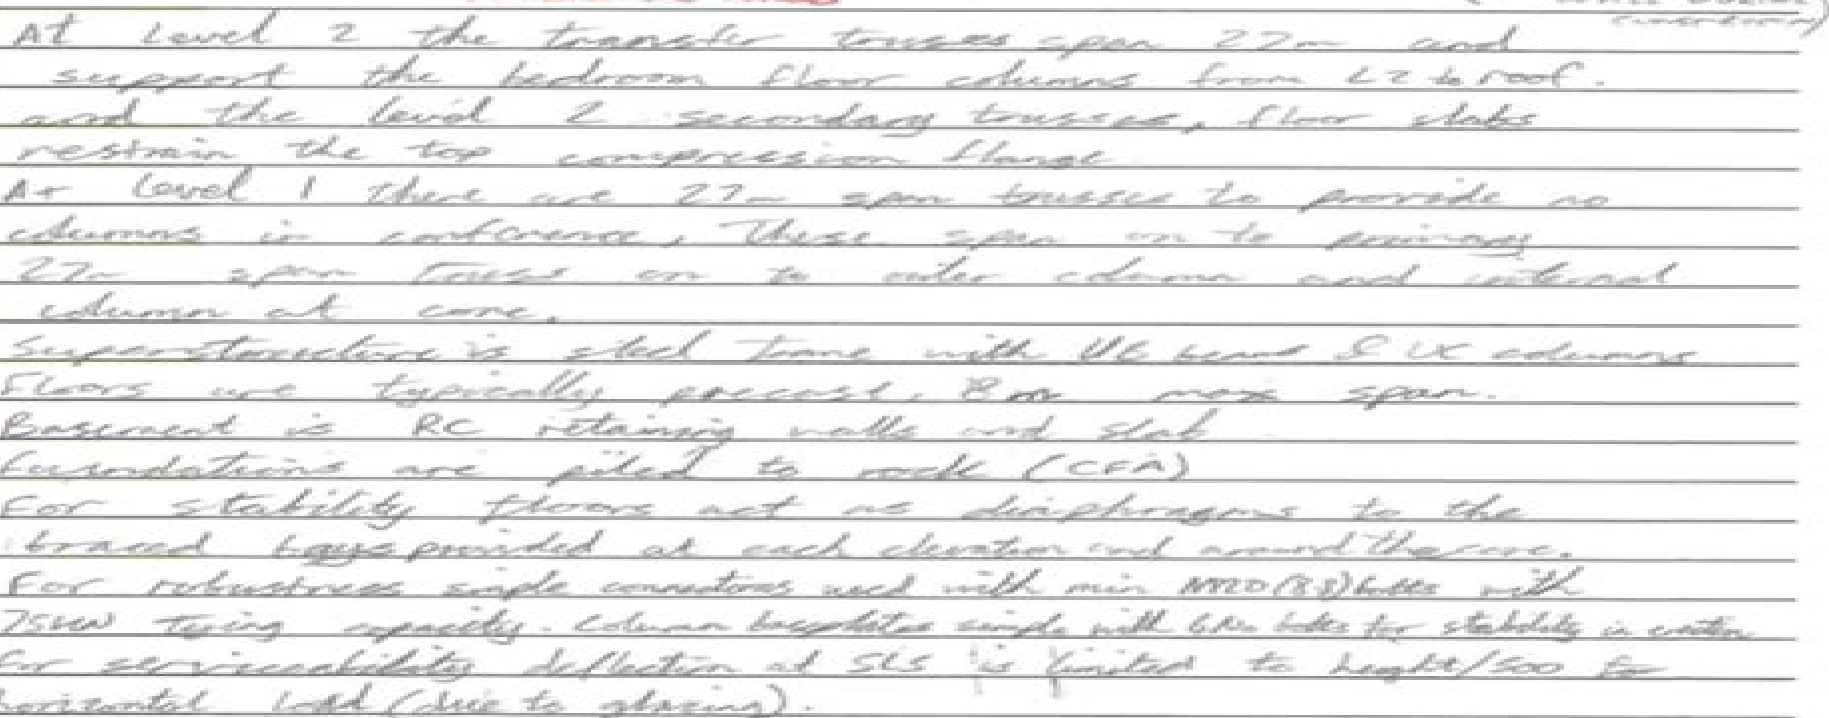 At Level 2 the transfer trusses span 27m and
support the bedroom floor columns from L2 to roof.
and the level 2 secondary trusses, floor slabs
restrain the top compression flange
At Level 1 there are 27m span trusses to provide no
columns in conference, These span on to primary
27m span truss on to outer column and internal
column at core.
Superstructure is steel frame with UB beams & UC columns
Floors are typically precast, 8m max span.
Basement is RC retaining walls and slab
foundations are piled to rock (CFA)
For stability floors act as diaphragms to the
braced bays provided at each elevation and around the core.
For robustness simple connections used with min M20 (8.8) bolts with
75kN tying capacity. Column baseplates simple with bolts for stability in
for serviceability deflection at SLS is limited to height/500 for
horizontal load (due to glazing).